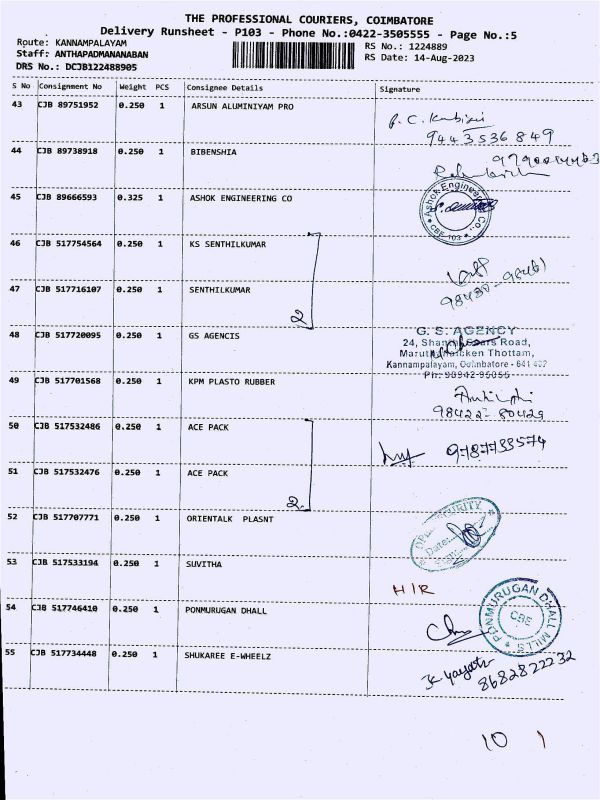 THE PROFESSIONAL COURIERS, COIMBATORE
Delivery Runsheet - P103 - Phone No.:0422-3505555 - Page No.:5
Route: KANNAMPALAYAM
RS No.: 1224889
Staff: ANTHAPADMANANABAN
RS Date: 14-Aug-2023
DRS No.: DCJB122488905
S No Consignment No Weight PCS Consignee Details Signature
43 CJB 89751952 0.250 1 ARSUN ALUMINIYAM PRO
9443536849
44 CJB 89738918 0.250 1 BIBENSHIA
45 CJB 89666593 0.325 1 ASHOK ENGINEERING CO
Ashok Engineering Co.
CBE-103
46 CJB 517754564 0.250 1 KS SENTHILKUMAR
47 CJB 517716107 0.250 1 SENTHILKUMAR
2
98430-98461
48 CJB 517720095 0.250 1 GS AGENCIS
G. S. AGENCY
Road,
Thottam,
Kannampalayam, Coimbatore - 641 402
49 CJB 517701568 0.250 1 KPM PLASTO RUBBER
98422-80429
50 CJB 517532486 0.250 1 ACE PACK
9787733574
51 CJB 517532476 0.250 1 ACE PACK
2
52 CJB 517707771 0.250 1 ORIENTALK PLASNT
SECURITY
Date:
53 CJB 517533194 0.250 1 SUVITHA
H/R
54 CJB 517746410 0.250 1 PONMURUGAN DHALL
PONMURUGAN DHALL MILLS
CBE
55 CJB 517734448 0.250 1 SHUKAREE E-WHEELZ
8682822232
10 1